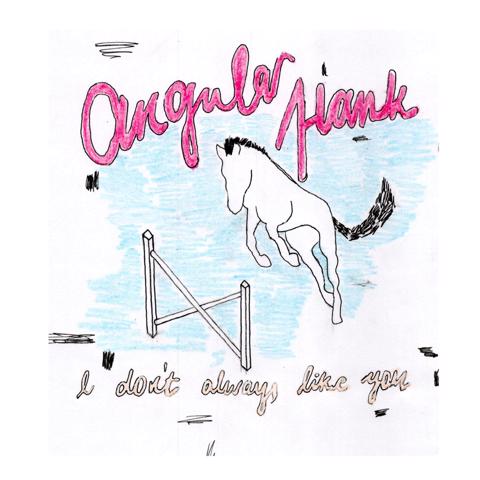 angular flank
I don't always like you